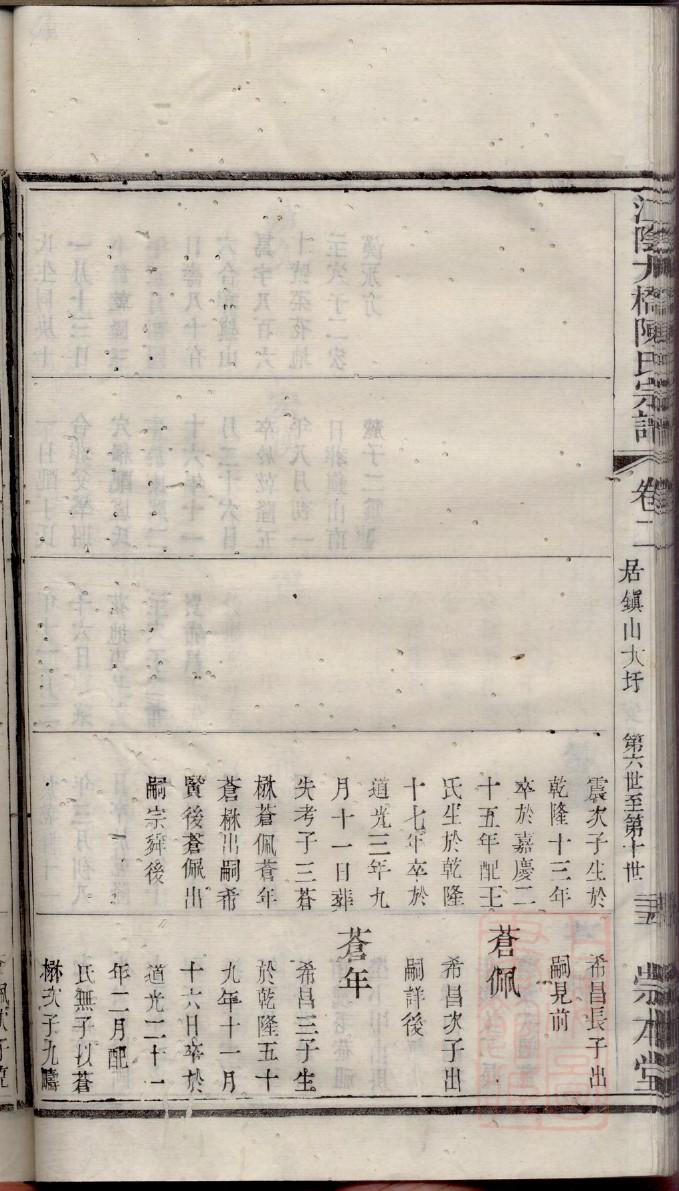 江陰大橋陳氏宗譜
卷二
居鎮山大圩
第六世至第十世
崇本堂
震次子生於
乾隆十三年
卒於嘉慶二
十五年配王
氏生於乾隆
十七年卒於
道光三年九
月十一日葬
失考子三蒼
楙蒼佩蒼年
蒼楙出嗣希
賢後蒼佩出
嗣宗舜後
希昌長子出
嗣見前
蒼佩
希昌次子出
嗣詳後
蒼年
希昌三子生
於乾隆五十
九年十一月
十六日卒於
道光二十一
年二月配
氏無子以蒼
楙次子九疇